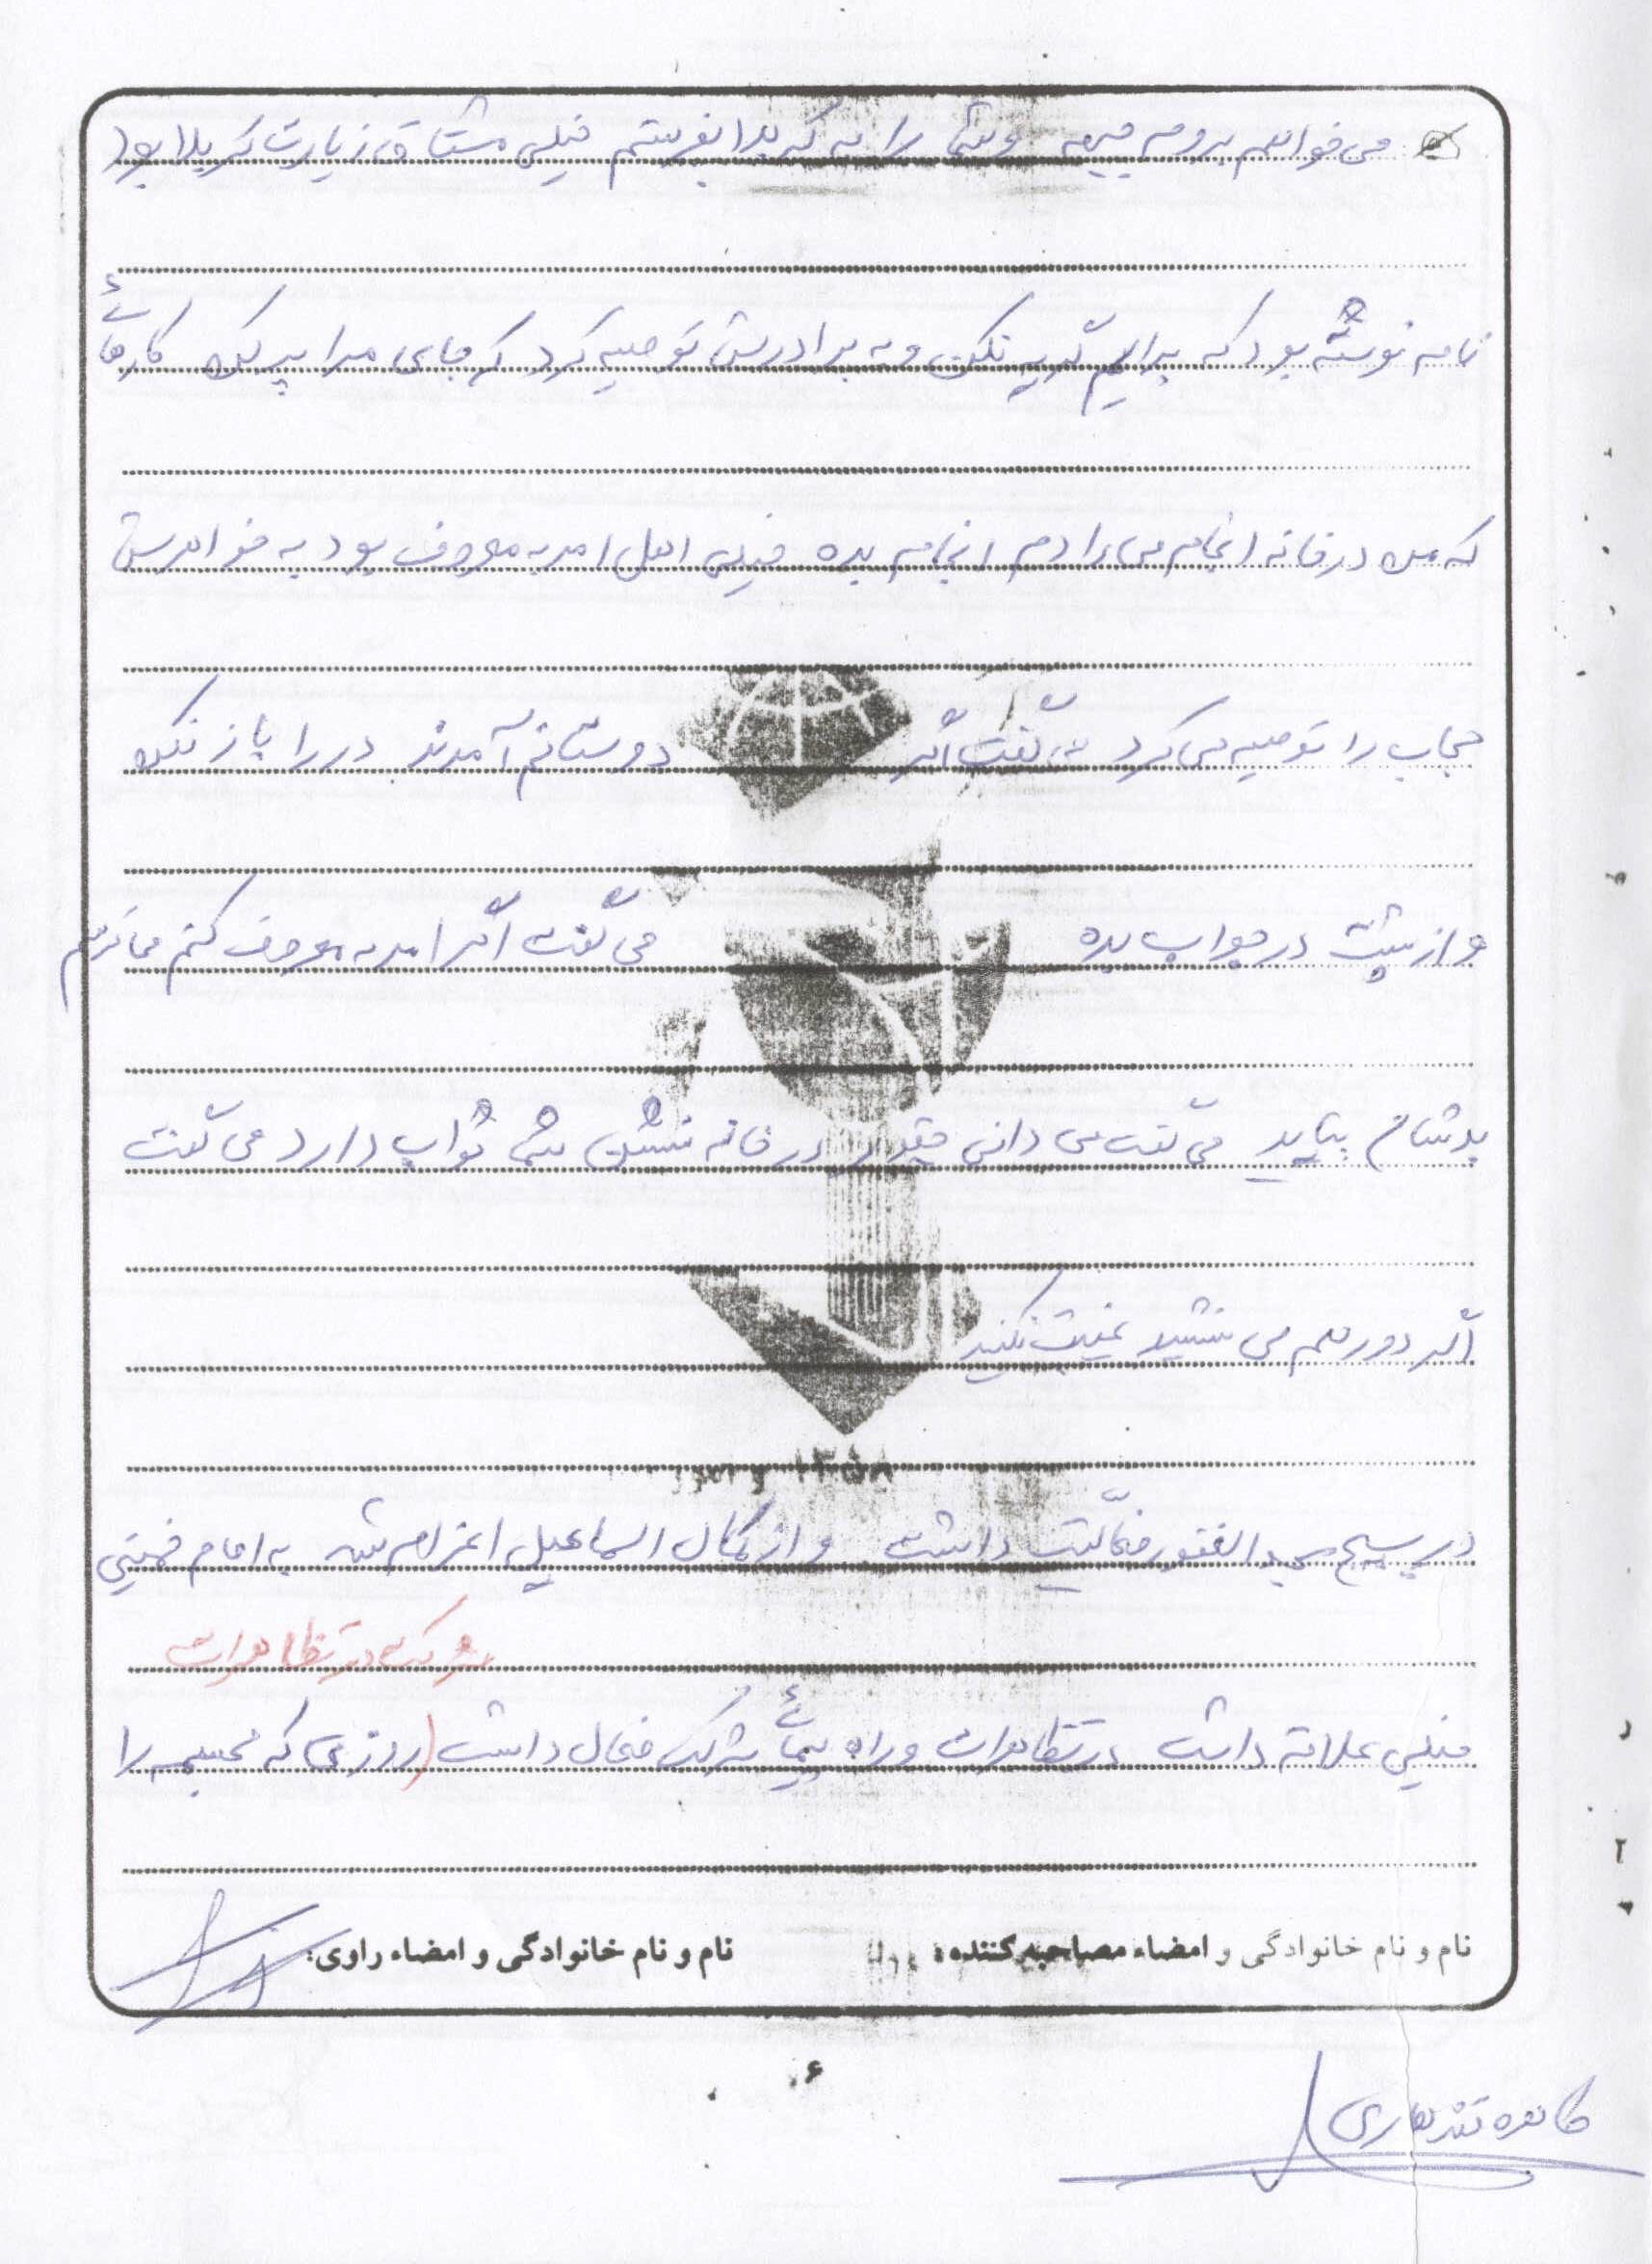 می خواهم بروم جبهه و شما را به کربلا بفرستم خیلی مشتاق زیارت کربلا بود
نامه نوشته بود که برایم گریه نکن و به برادرش توصیه کرد که جای مرا پر کن کارهائی
که من در خانه انجام می دادم انجام بده خیلی اهل امر به معروف بود به خواهرش
حجاب را توصیه می کرد گفت اگر دوستانم آمدند در را باز نکن
و از پشت در جواب بده می گفت اگر امر به معروف کنم می ترسم
بدشام بیاید می گفت می دانی چقدر در خانه نشستن شما ثواب دارد می گفت
اگر دور هم می نشینید غیبت نکنید
۱۳۵۸
در بسیج مسجد الغفور فعالیت داشت و از کمال اسماعیل اعزام شد به امام خمینی
شرکت در تظاهرات
خیلی علاقه داشت در تظاهرات و راه پیمائی شرکت فعال داشت (روزی که مجسمه را
نام و نام خانوادگی و امضاء مصاحبه کننده: نام و نام خانوادگی و امضاء راوی:
۶
طاهره قندهاری